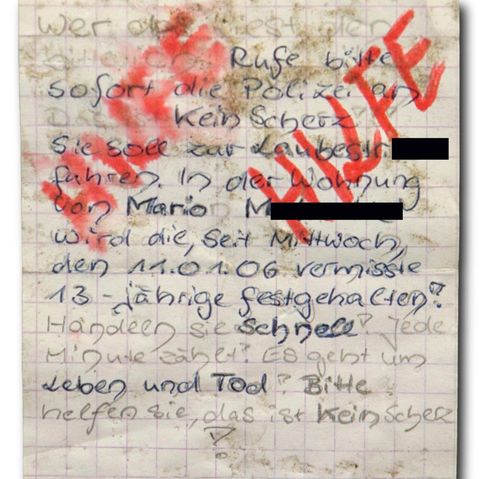 Wer das liest den
Rufe bitte
sofort die Polizei an
Kein Scherz?
Sie soll zur Laubestr.
fahren. In der Wohnung
von Mario M
wird die, seit Mittwoch,
den 11.01.06 vermisste
13-jährige festgehalten?
Handeln sie schnell? Jede
Minute zählt? Es geht um
Leben und Tod? Bitte
helfen sie, das ist Kein Scherz
?
HILFE